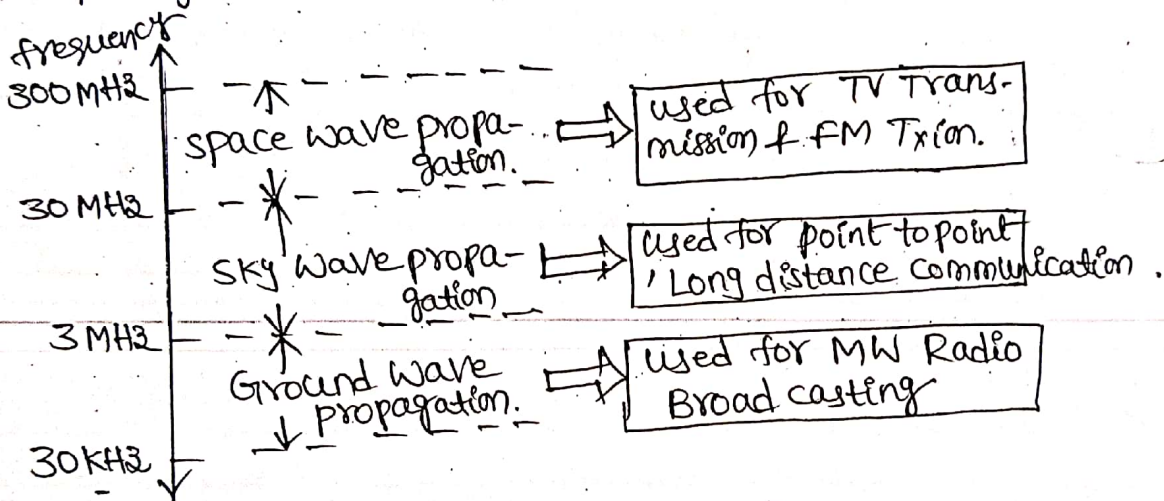 frequency
300 MHz
space wave propa-
gation.
used for TV Trans-
mission & FM Txion.
30 MHz
sky wave propa-
gation
used for point to point
/ Long distance communication.
3 MHz
Ground wave
propagation.
used for MW Radio
Broad casting
30 KHz